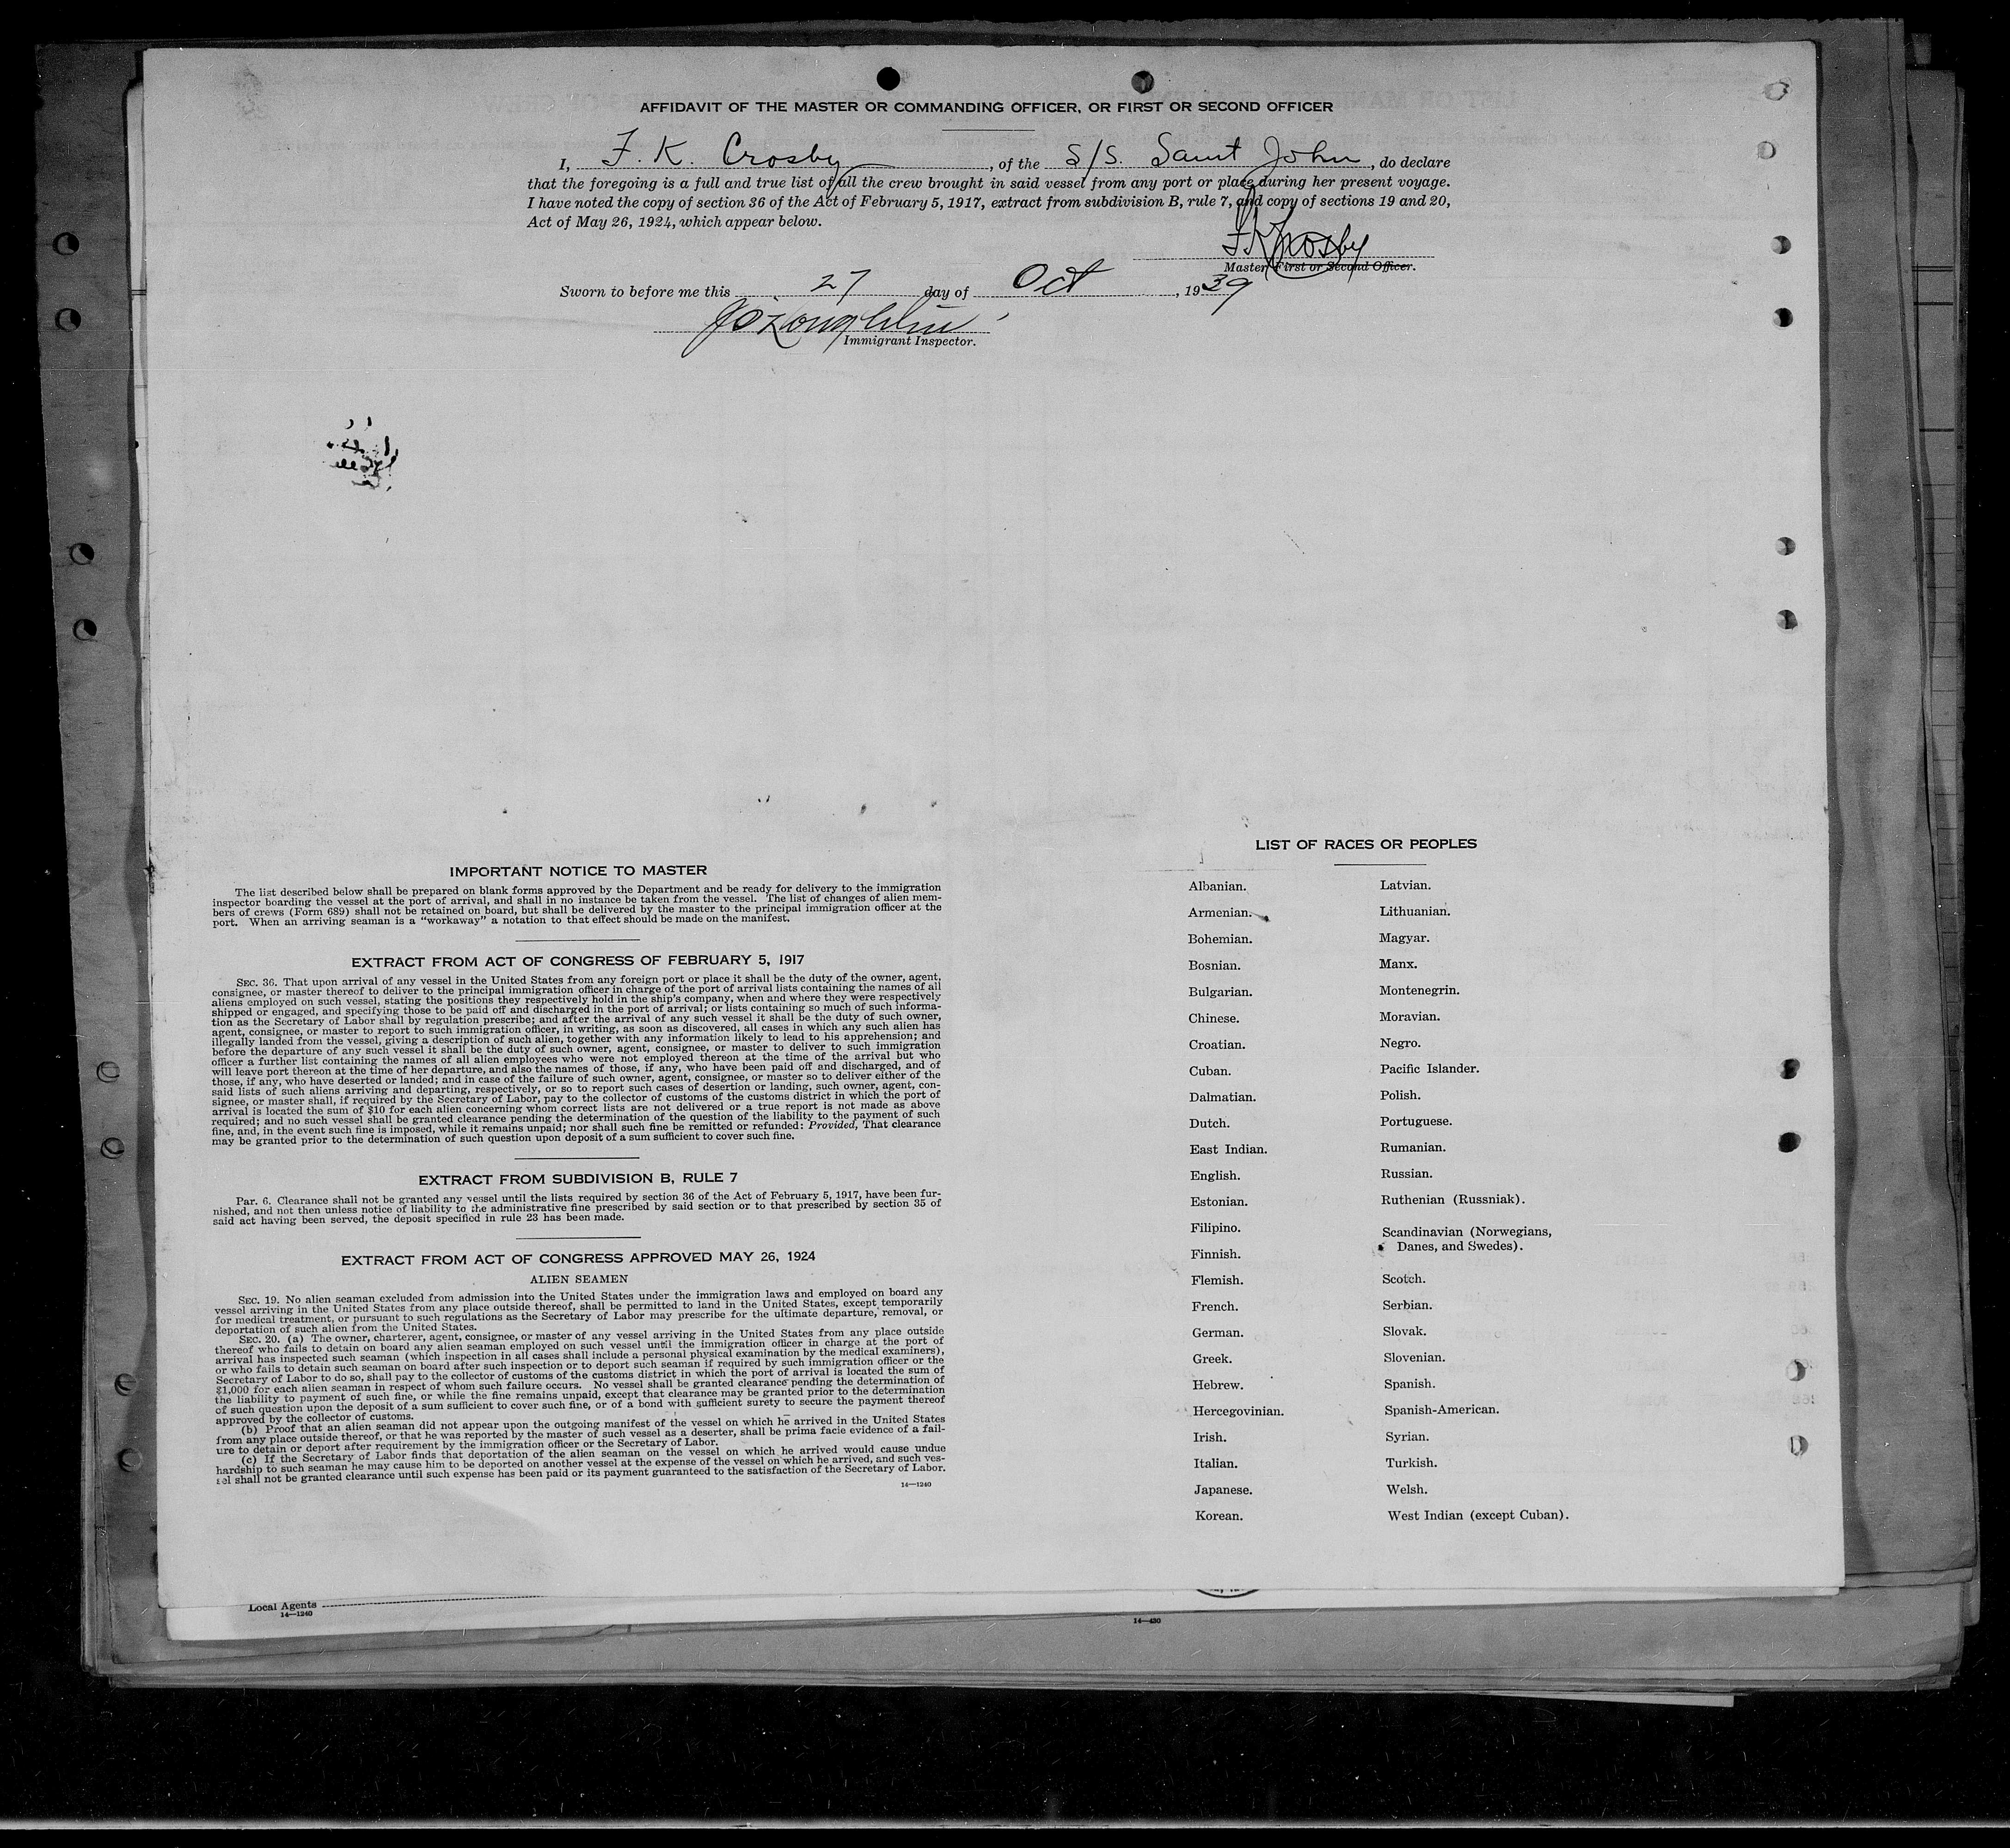 AFFIDAVIT OF THE MASTER OR COMMANDING OFFICER, OR FIRST OR SECOND OFFICER
I, F. K. Crosby, of the S/S. Saint John, do declare
that the foregoing is a full and true list of all the crew brought in said vessel from any port or place during her present voyage.
I have noted the copy of section 36 of the Act of February 5, 1917, extract from subdivision B, rule 7, and copy of sections 19 and 20,
Act of May 26, 1924, which appear below.
F K Crosby
Master First or Second Officer.
Sworn to before me this 27 day of Oct, 1939
Immigrant Inspector.
IMPORTANT NOTICE TO MASTER
The list described below shall be prepared on blank forms approved by the Department and be ready for delivery to the immigration
inspector boarding the vessel at the port of arrival, and shall in no instance be taken from the vessel. The list of changes of alien mem-
bers of crews (Form 689) shall not be retained on board, but shall be delivered by the master to the principal immigration officer at the
port. When an arriving seaman is a "workaway" a notation to that effect should be made on the manifest.
EXTRACT FROM ACT OF CONGRESS OF FEBRUARY 5, 1917
SEC. 36. That upon arrival of any vessel in the United States from any foreign port or place it shall be the duty of the owner, agent,
consignee, or master thereof to deliver to the principal immigration officer in charge of the port of arrival lists containing the names of all
aliens employed on such vessel, stating the positions they respectively hold in the ship's company, when and where they were respectively
shipped or engaged, and specifying those to be paid off and discharged in the port of arrival; or lists containing so much of such informa-
tion as the Secretary of Labor shall by regulation prescribe; and after the arrival of any such vessel it shall be the duty of such owner,
agent, consignee, or master to report to such immigration officer, in writing, as soon as discovered, all cases in which any such alien has
illegally landed from the vessel, giving a description of such alien, together with any information likely to lead to his apprehension; and
before the departure of any such vessel it shall be the duty of such owner, agent, consignee, or master to deliver to such immigration
officer a further list containing the names of all alien employees who were not employed thereon at the time of the arrival but who
will leave port thereon at the time of her departure, and also the names of those, if any, who have been paid off and discharged, and of
those, if any, who have deserted or landed; and in case of the failure of such owner, agent, consignee, or master so to deliver either of the
said lists of such aliens arriving and departing, respectively, or so to report such cases of desertion or landing, such owner, agent, con-
signee, or master shall, if required by the Secretary of Labor, pay to the collector of customs of the customs district in which the port of
arrival is located the sum of $10 for each alien concerning whom correct lists are not delivered or a true report is not made as above
required; and no such vessel shall be granted clearance pending the determination of the question of the liability to the payment of such
fine, and, in the event such fine is imposed, while it remains unpaid; nor shall such fine be remitted or refunded: Provided, That clearance
may be granted prior to the determination of such question upon deposit of a sum sufficient to cover such fine.
EXTRACT FROM SUBDIVISION B, RULE 7
Par. 6. Clearance shall not be granted any vessel until the lists required by section 36 of the Act of February 5, 1917, have been fur-
nished, and not then unless notice of liability to the administrative fine prescribed by said section or to that prescribed by section 35 of
said act having been served, the deposit specified in rule 23 has been made.
EXTRACT FROM ACT OF CONGRESS APPROVED MAY 26, 1924
ALIEN SEAMEN
SEC. 19. No alien seaman excluded from admission into the United States under the immigration laws and employed on board any
vessel arriving in the United States from any place outside thereof, shall be permitted to land in the United States, except temporarily
for medical treatment, or pursuant to such regulations as the Secretary of Labor may prescribe for the ultimate departure, removal, or
deportation of such alien from the United States.
SEC. 20. (a) The owner, charterer, agent, consignee, or master of any vessel arriving in the United States from any place outside
thereof who fails to detain on board any alien seaman employed on such vessel until the immigration officer in charge at the port of
arrival has inspected such seaman (which inspection in all cases shall include a personal physical examination by the medical examiners),
or who fails to detain such seaman on board after such inspection or to deport such seaman if required by such immigration officer or the
Secretary of Labor to do so, shall pay to the collector of customs of the customs district in which the port of arrival is located the sum of
$1,000 for each alien seaman in respect of whom such failure occurs. No vessel shall be granted clearance pending the determination of
the liability to payment of such fine, or while the fine remains unpaid, except that clearance may be granted prior to the determination
of such question upon the deposit of a sum sufficient to cover such fine, or of a bond with sufficient surety to secure the payment thereof
approved by the collector of customs.
(b) Proof that an alien seaman did not appear upon the outgoing manifest of the vessel on which he arrived in the United States
from any place outside thereof, or that he was reported by the master of such vessel as a deserter, shall be prima facie evidence of a fail-
ure to detain or deport after requirement by the immigration officer or the Secretary of Labor.
(c) If the Secretary of Labor finds that deportation of the alien seaman on the vessel on which he arrived would cause undue
hardship to such seaman he may cause him to be deported on another vessel at the expense of the vessel on which he arrived, and such ves-
sel shall not be granted clearance until such expense has been paid or its payment guaranteed to the satisfaction of the Secretary of Labor.
14—1240
LIST OF RACES OR PEOPLES
Albanian.
Armenian.
Bohemian.
Bosnian.
Bulgarian.
Chinese.
Croatian.
Cuban.
Dalmatian.
Dutch.
East Indian.
English.
Estonian.
Filipino.
Finnish.
Flemish.
French.
German.
Greek.
Hebrew.
Hercegovinian.
Irish.
Italian.
Japanese.
Korean.
Latvian.
Lithuanian.
Magyar.
Manx.
Montenegrin.
Moravian.
Negro.
Pacific Islander.
Polish.
Portuguese.
Rumanian.
Russian.
Ruthenian (Russniak).
Scandinavian (Norwegians,
Danes, and Swedes).
Scotch.
Serbian.
Slovak.
Slovenian.
Spanish.
Spanish-American.
Syrian.
Turkish.
Welsh.
West Indian (except Cuban).
Local Agents
14—1240
14—430